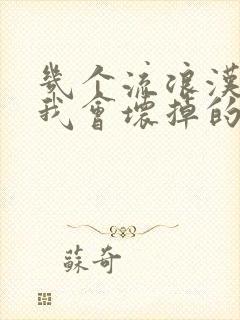 幾个流浪漢
我會壞掉的
蘇奇